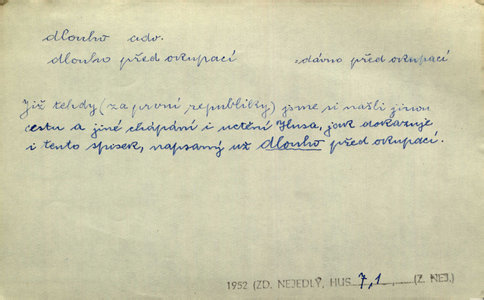 dlouho adv.
dlouho před okupací :dávno před okupací
Již tehdy (za první republiky) jsme si našli jinou
cestu a jiné chápání i uctění Husa, jak dokazuje
i tento spisek, napsaný už dlouho před okupací.
1952 (ZD. NEJEDLÝ, HUS 7,1 (Z. NEJ.)